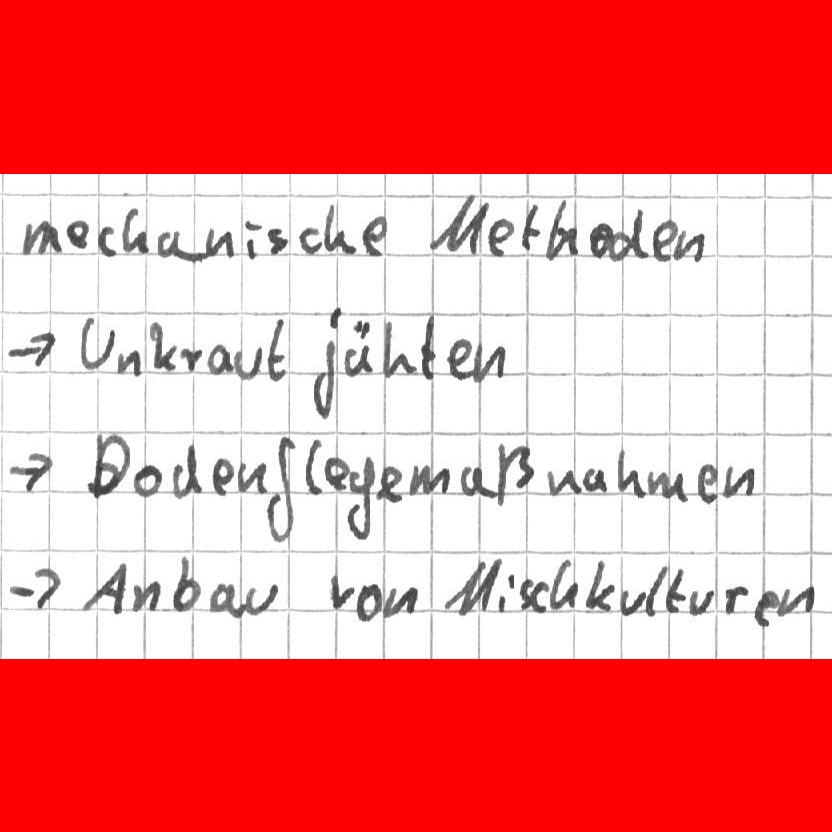 mechanische Methoden
→ Unkraut jähten
→ Bodenflegemaßnahmen
→ Anbau von Mischkulturen